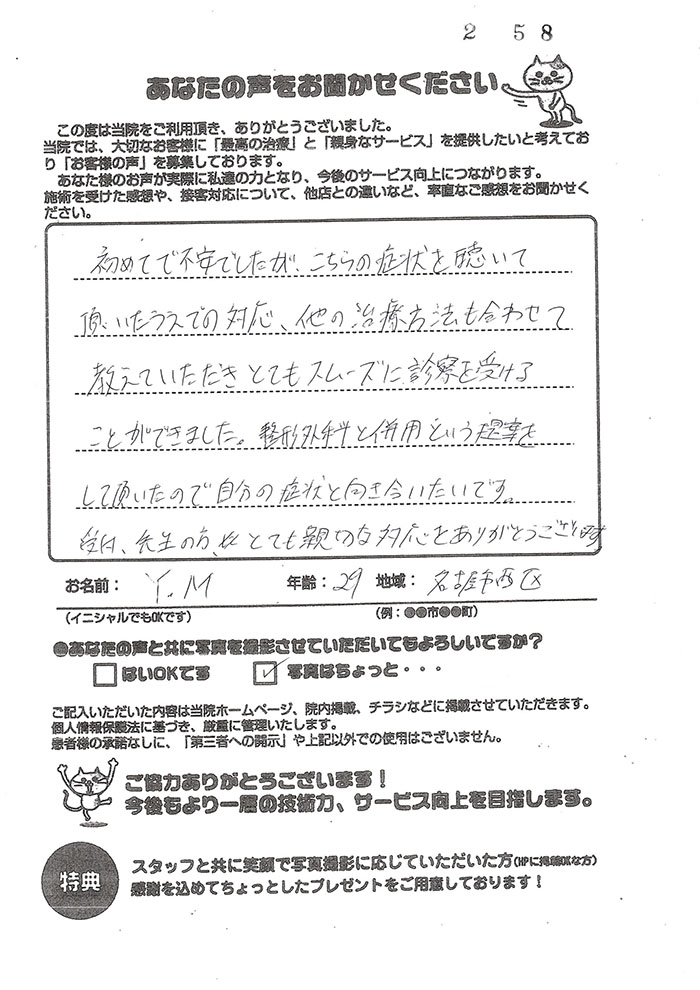 2 58
あなたの声をお聞かせください
この度は当院をご利用頂き、ありがとうございました。
当院では、大切なお客様に「最高の治療」と「親身なサービス」を提供したいと考えてお
り「お客様の声」を募集しております。
あなた様のお声が実際に私達の力となり、今後のサービス向上につながります。
施術を受けた感想や、接客対応について、他店との違いなど、率直なご感想をお聞かせく
ださい。
初めてで不安でしたが、こちらの症状を聴いて
頂いたうえでの対応、他の治療方法も合わせて
教えていただきとてもスムーズに診察を受ける
ことができました。整形外科と併用という提案を
して頂いたので自分の症状と向き合いたいです。
受付、先生の方々とても親切な対応をありがとうございます
お名前： Y.M 年齢：29 地域： 名古屋市西区
（イニシャルでもOKです） （例：●●市●●町）
●あなたの声と共に写真を撮影させていただいてもよろしいですか？
□はいOKです ☑写真はちょっと・・・
ご記入いただいた内容は当院ホームページ、院内掲載、チラシなどに掲載させていただきます。
個人情報保護法に基づき、厳重に管理いたします。
患者様の承諾なしに、「第三者への開示」や上記以外での使用はございません。
ご協力ありがとうございます！
今後もより一層の技術力、サービス向上を目指します。
特典
スタッフと共に笑顔で写真撮影に応じていただいた方（HPに掲載OKな方）
感謝を込めてちょっとしたプレゼントをご用意しております！